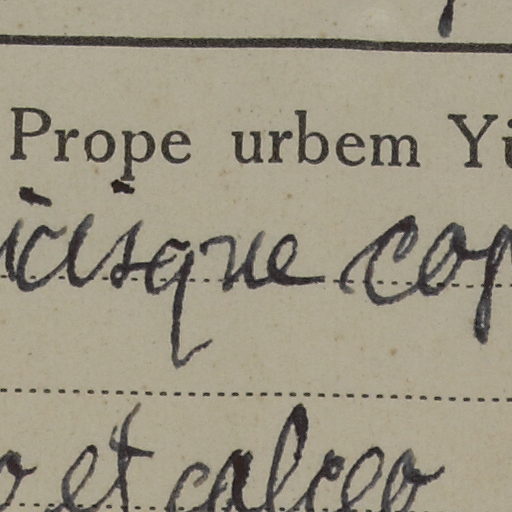 Prope urbem Yü
icisque cop
o et calceo